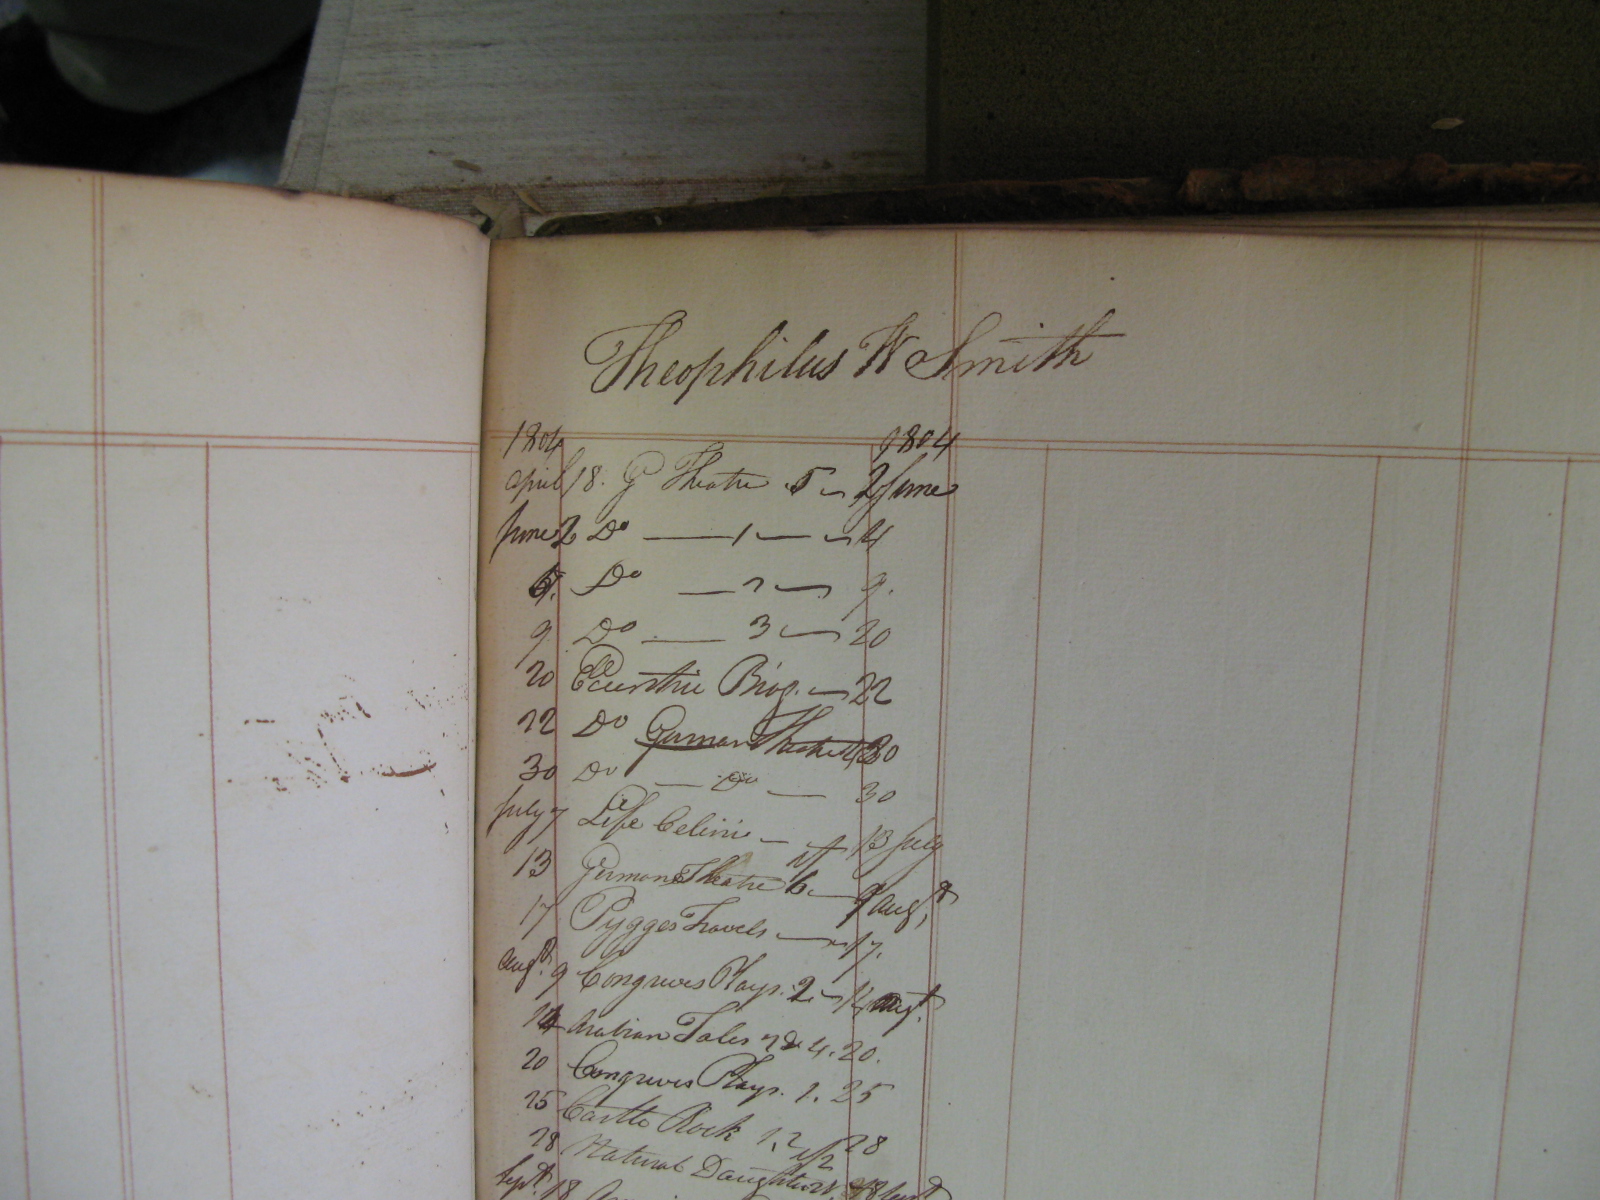 Theophilus W Smith
1804 1804
April 18. G Theatre 5 2 June
June 2 Do 1 4
Do 2 9.
9 Do 3 20
20 Eccentric Biog. 22
22 Do German Theatre 30
30 Do Do 30
July 7 Life Celini 13 July
13 German Theatre 6 9 Augt
17 Pygges Travels 17.
Augt. 9 Congreves Plays. 2 14 Augt.
14 Arabian Tales 2 & 4. 20.
20 Congreves Plays. 1. 25
25 Castle Rock 1,2 28
28 Natural Daughter
Sept. 18